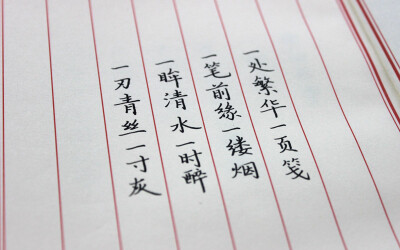 一处繁华一页笺
一笔前缘一缕烟
一眸清水一时醉
一刃青丝一寸灰